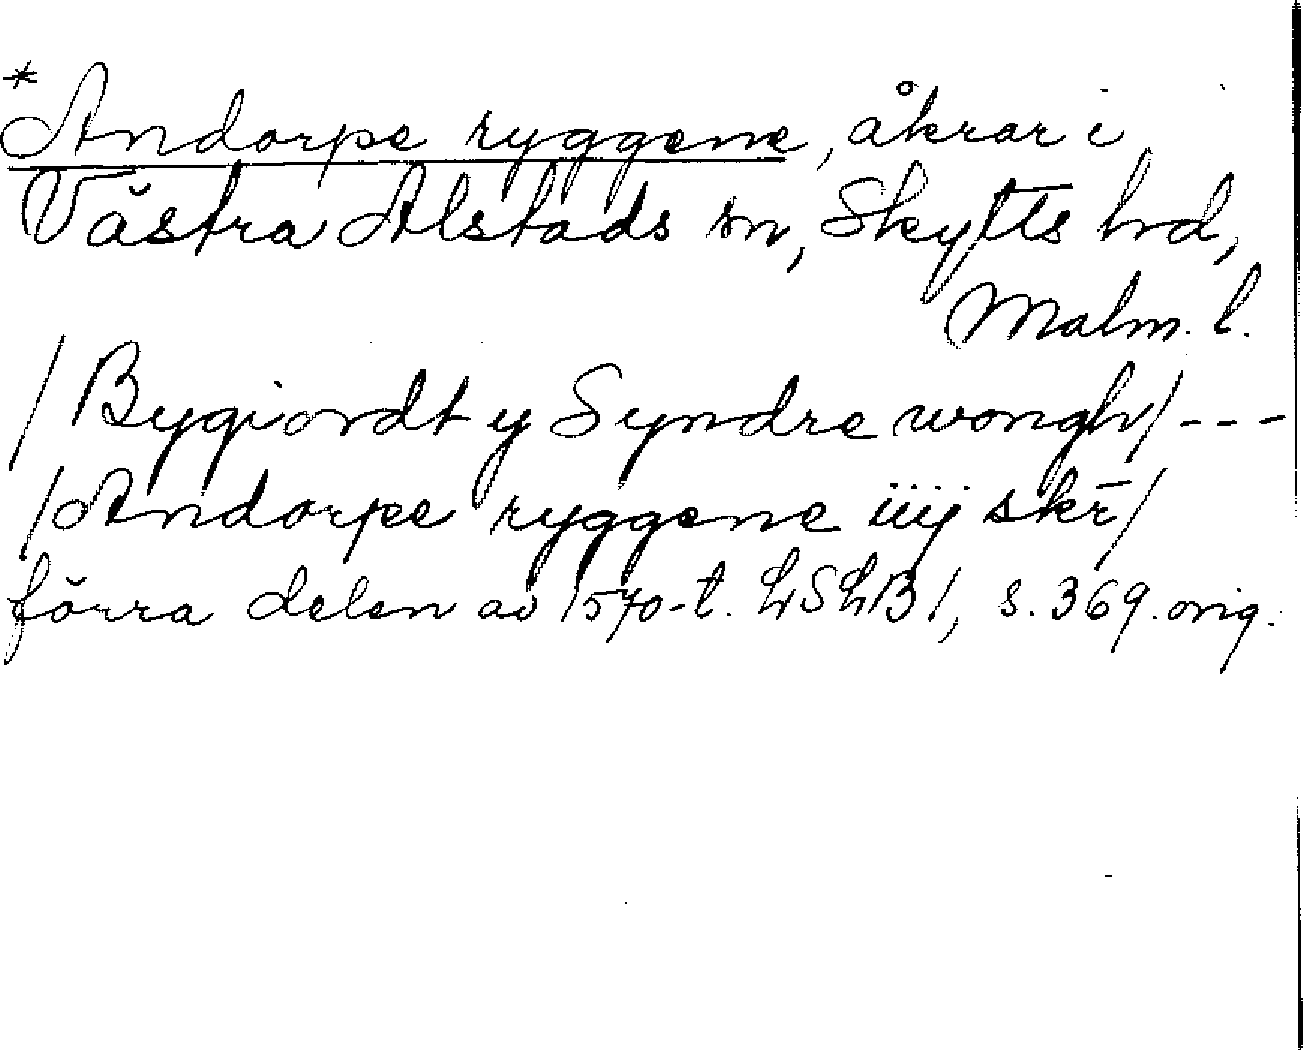 *Andorpe ryggene, åkrar i
Västra Alstads sn, Skytts hd,
Malm. l.
/Bygiordt y Syndre wongh/---
/Andorpe ryggene iiij skr̄/
förra delen av 1570-t. LSLB1, s. 369. orig.